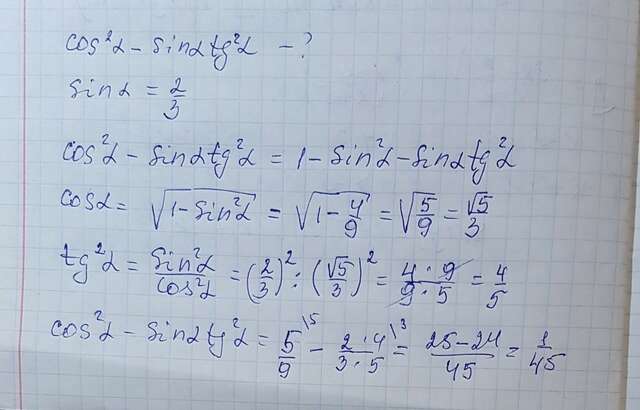 cos²α - sinα tg²α - ?
sinα = 2/3
cos²α - sinα tg²α = 1 - sin²α - sinα tg²α
cosα = √(1 - sin²α) = √(1 - 4/9) = √(5/9) = √5/3
tg²α = sin²α/cos²α = (2/3)² : (√5/3)² = (4·9)/(9·5) = 4/5
cos²α - sinα tg²α = 5/9 \5 - (2·4)/(3·5) \3 = (25-24)/45 = 1/45